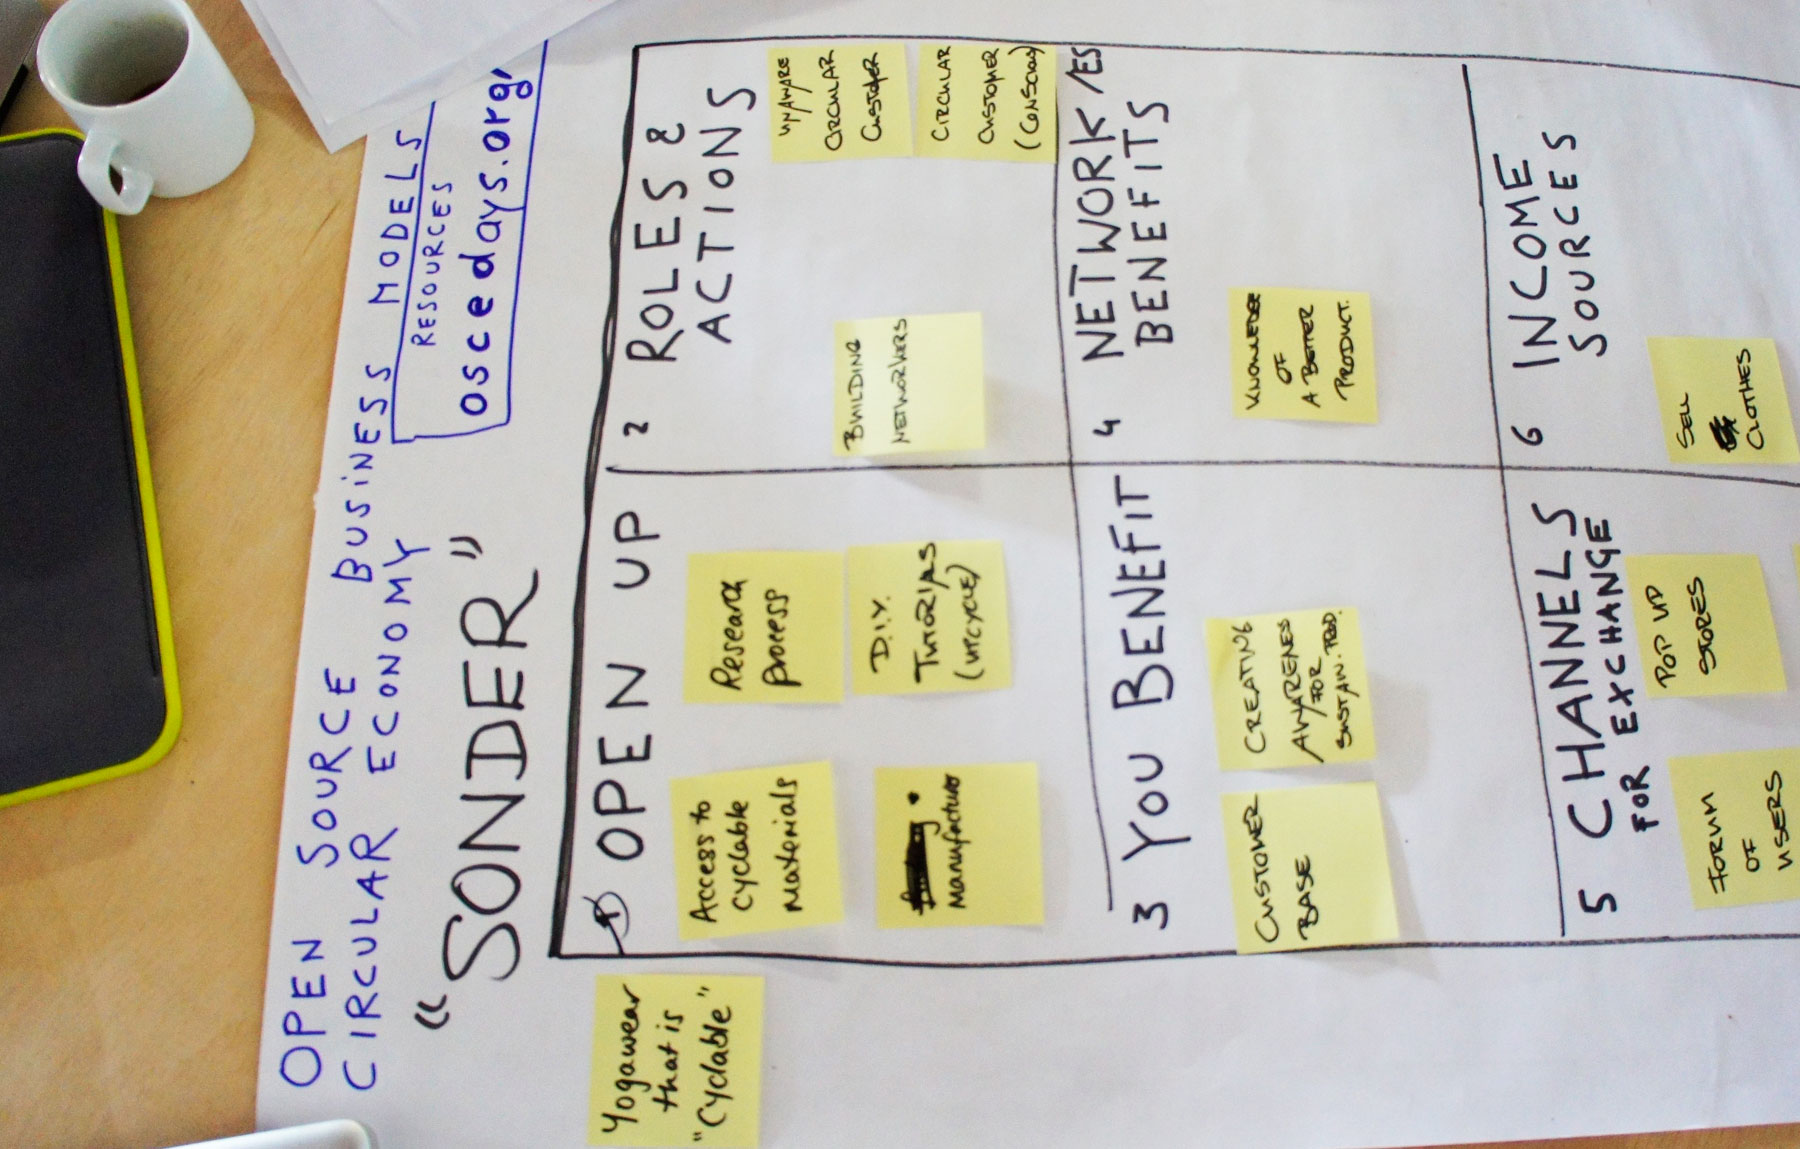 OPEN SOURCE BUSINESS MODELS
CIRCULAR ECONOMY
RESOURCES
oscedays.org
"SONDER"
Yogawear
that is
"Cyclable"
1 OPEN UP
Access to
cyclable
materials
Research
process
Manufacture
D.I.Y.
TUTORIALS
(UPCYCLE)
2 ROLES &
ACTIONS
UNAWARE
CIRCULAR
CUSTOMER
CIRCULAR
CUSTOMER
(CONSCIOUS)
BUILDING
NETWORKERS
3 YOU BENEFIT
CUSTOMER
BASE
CREATING
AWARENESS
FOR
SUSTAIN. PROD.
4 NETWORK/ES
BENEFITS
KNOWLEDGE
OF
A BETTER
PRODUCT.
5 CHANNELS
FOR EXCHANGE
FORUM
OF
USERS
POP UP
STORES
6 INCOME
SOURCES
SELL
CLOTHES